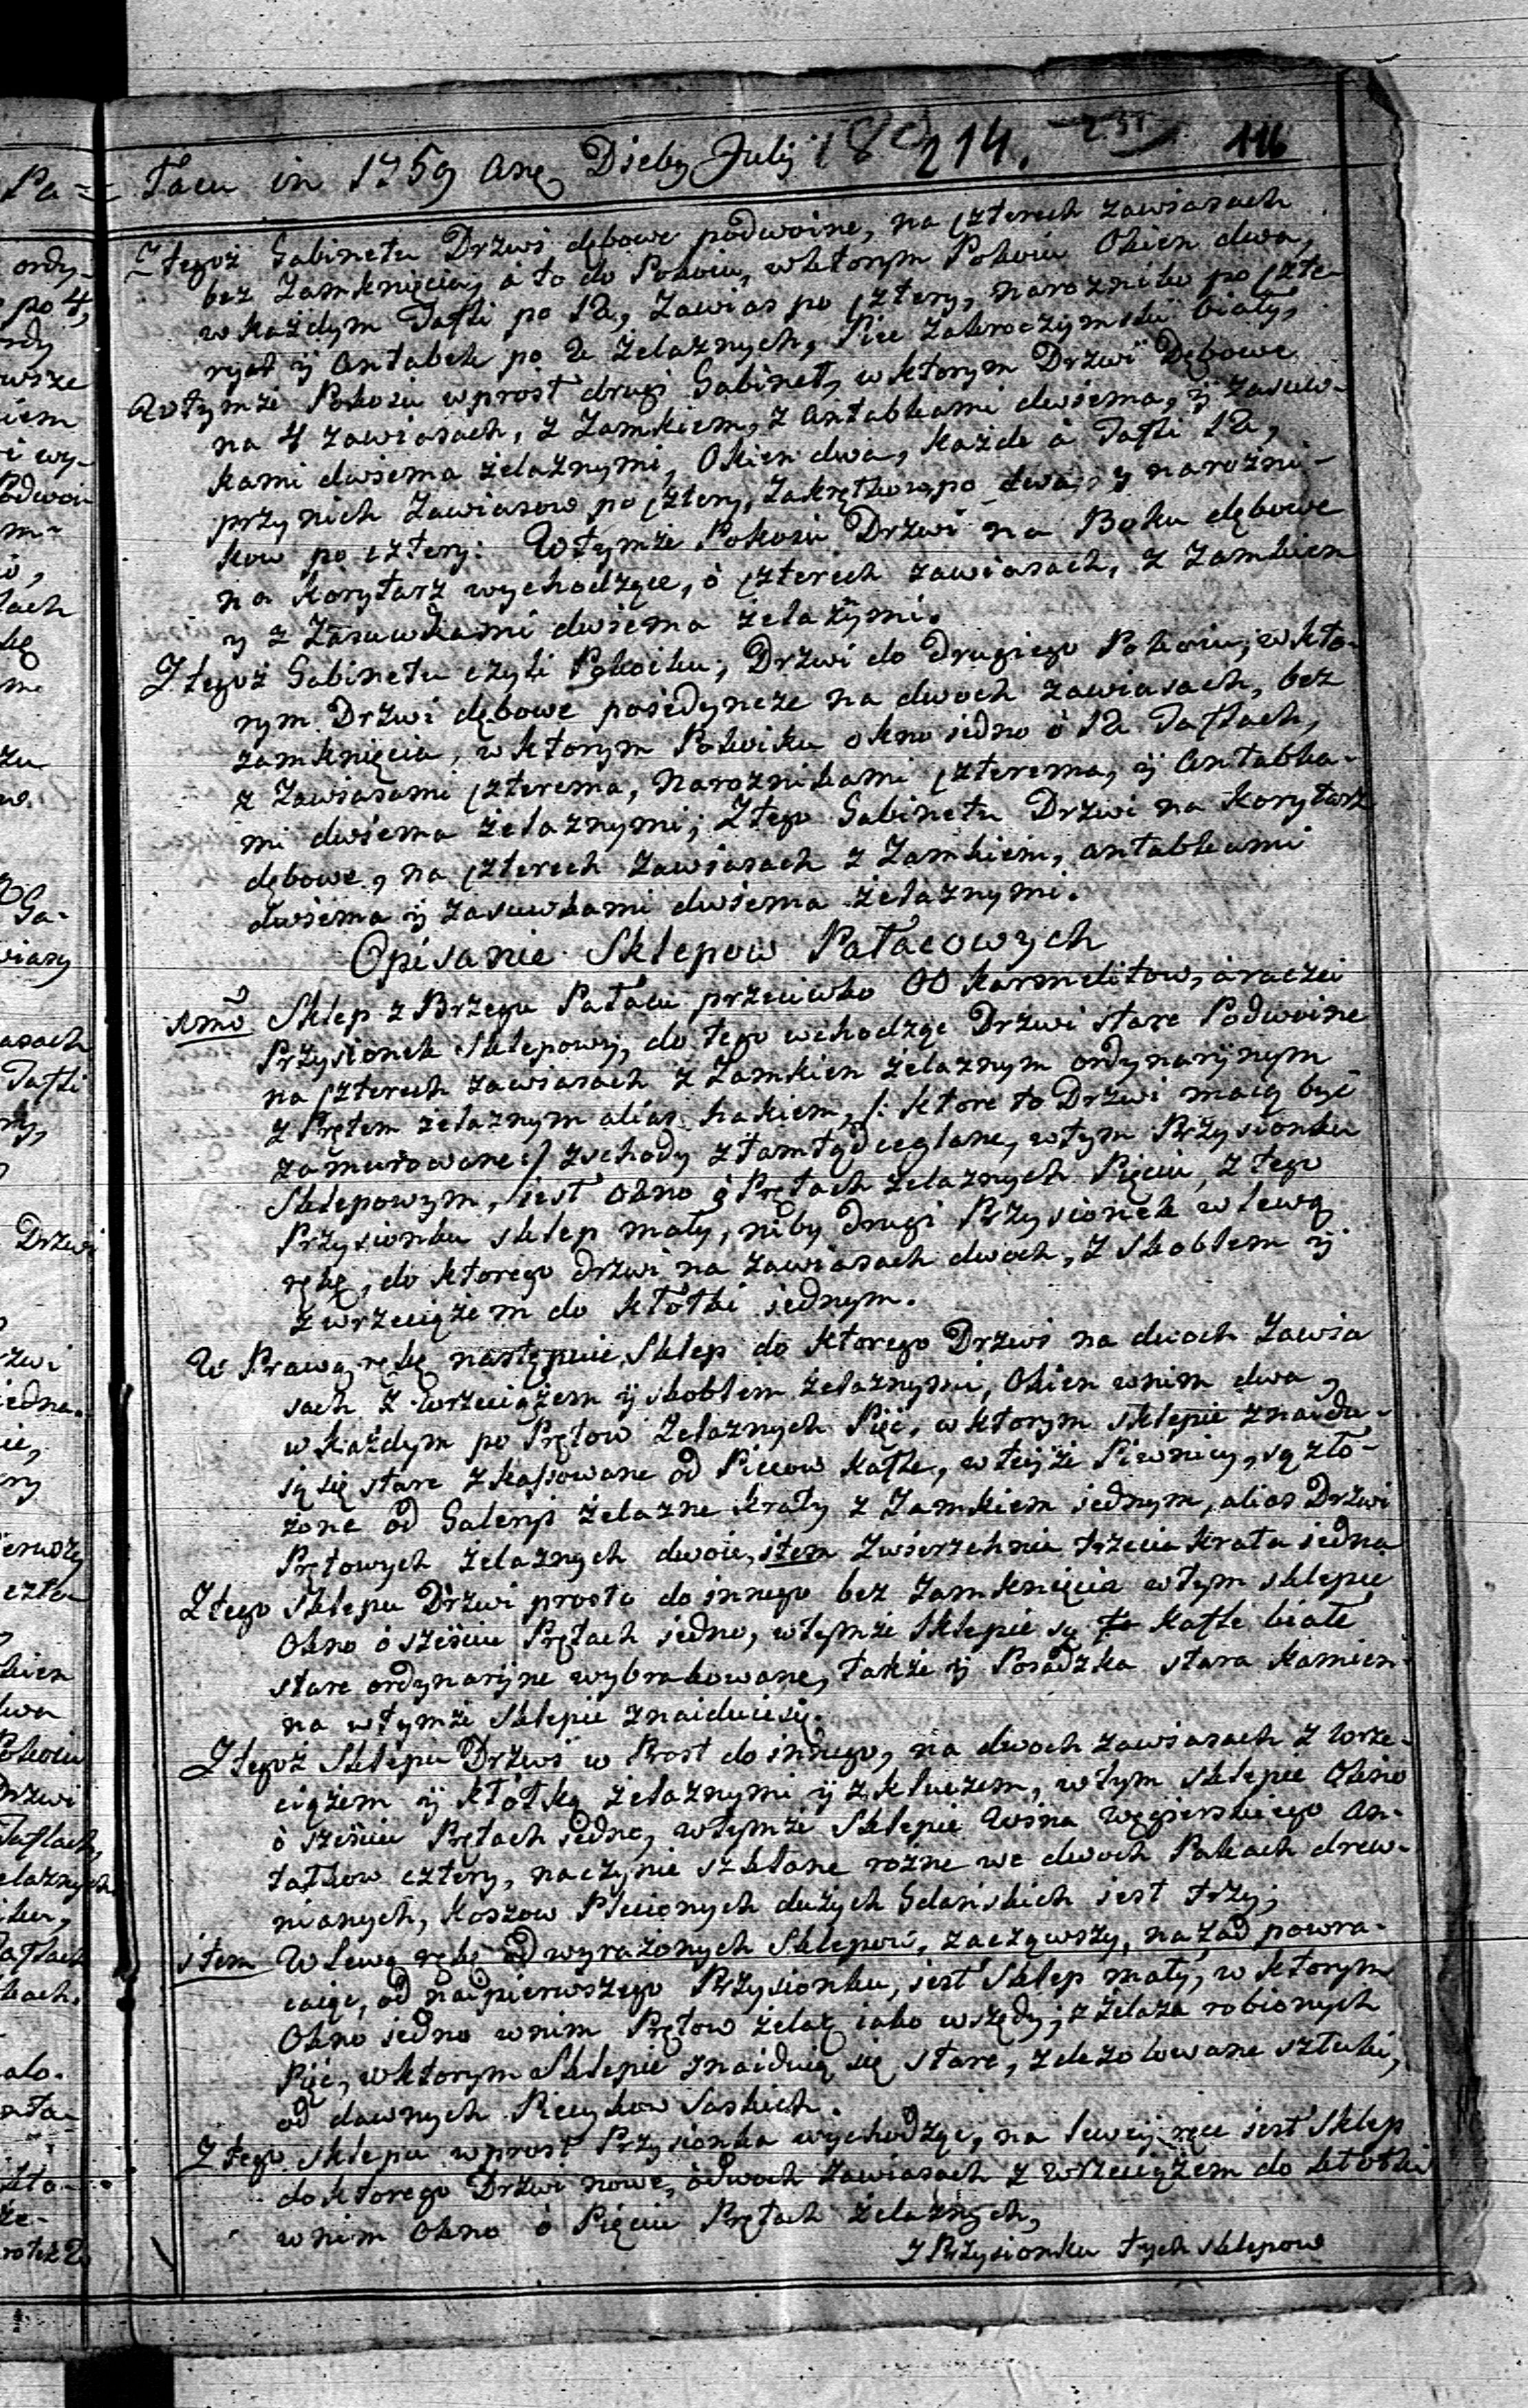 łacu in 1759 Anę Dieby Julij 18° 214. 231 116
Z tegoż Gabinetu Drzwi dębowe podwoine, na czterech zawiasach
bez Zamknięcia, á to do Pokoiu, w ktorym Pokoiu Okien dwa,
w każdym Tafli po 12, Zawias po cztery, narożnikow po czte-
ry, y Antabek po 2 żelaznych, Piec Zakroczymski biały,
W tymże Pokoiu wprost drugi Gabinet, w ktorym Drzwi Dębowe
na 4 zawiasach, z Zamkiem, z Antabkami dwiema, ÿ zasuw-
kami dwiema żelaznymi, Okien dwa, każde á Tafli 12,
przy nich Zawiasow po cztery, Zakrętkow po dwa, y narożni-
kow po cztery: W tymże Pokoiu Drzwi na Boku dębowe
na Korytarz wychodzące, ó czterech zawiasach, z Zamkiem
y z Zasuwkami dwiema żelaznymi.
Z tegoż Gabinetu czyli Pokoiku, Drzwi do Drugiego Pokoiu, w kto-
rym Drzwi dębowe poiedyncze na dwoch zawiasach, bez
zamknięcia, w ktorym Pokoiku okno iedno ó 12 Taflach,
z Zawiasami czterema, Narożnikami czterema, ÿ Antabka-
mi dwiema żelaznymi; Z tego Gabinetu Drzwi na Korytarz
dębowe, na czterech Zawiasach z Zamkiem, antabkami
dwiema ÿ zasuwkami dwiema żelaznymi.
Opisanie Sklepow Pałacowych
Sklep z Brzegu Pałacu przeciwko OO Karmelitow, á raczei
Przysionek Sklepowy, do tego wchodząc Drzwi stare Podwoine
na czterech zawiasach z Zamkiem żelaznym ordynaryinym
z Prętem żelaznym alias hakiem, /: ktore to Drzwi maią być
zamurowane :/ zschody ztamtąd ceglane, w tym Przysionku
Sklepowym, iest Okno ó Prętach żelaznych Pięciu, z tego
Przysionku sklep mały, niby drugi Przysionek w lewą
rękę, do ktorego drzwi na Zawiasach dwoch, z skoblem ÿ
z wrzeciążem do kłotki iednym.
W Prawą rękę następuie Sklep do ktorego Drzwi na dwoch Zawia
sach z wrzeciążem ÿ skoblem żelaznymi, Okien w nim dwa,
w każdym po Prętow Żelaznych Pięć, w ktorym sklepie znaidu-
ią się stare zkassowane od Piecow Kafle, w teyże Piwnicy, są zło-
żone od Galeryi żelazne kraty z Zamkiem iednym, alias Drzwi
Prętowych żelaznych dwoie, item Zwierzchnia trzecia krata iedna
Z tego Sklepu Drzwi prosto do innego bez Zamknięcia w tym sklepie
Okno ó sześciu Prętach iedno, w tymże Sklepie są Kafle białe
stare ordynaryine wybrakowane, także ÿ Posadzka stara kamien-
na w tymże Sklepie znaiduie się.
Z tegoż Sklepu Drzwi w Prost do innego, na dwoch zawiasach z wrze-
ciążem ÿ kłotką żelaznymi ÿ z kluczem, w tym sklepie Okno
ó sześciu Prętach iedno, w tymże Sklepie Wina Węgierskiego An-
tałkow cztery, naczynie szklane rożne we dwoch Pakach drew-
nianych, Koszow Plecionych dużych Gdańskich iest trzy;
item W lewą rękę od wyrażonych Sklepow, zacząwszy, nazad powra-
caiąc, od naipierwszego Przysionku, iest Sklep mały, w ktorym
Okno iedno w nim Prętow żelaz iako wszędy, z żelaza robionych
Pięć, w ktorym Sklepie znaiduią się stare, zdezolowane sztuki,
od dawnych Piecykow Saskich.
Z tego sklepu wprost Przysionka wychodząc, na lewey ręce iest Sklep
do ktorego Drzwi nowe, ó dwoch zawiasach z wrzeciążem do kłotki
w nim Okno ó Pięciu Prętach żelaznych,
z Przysionku tych sklepow